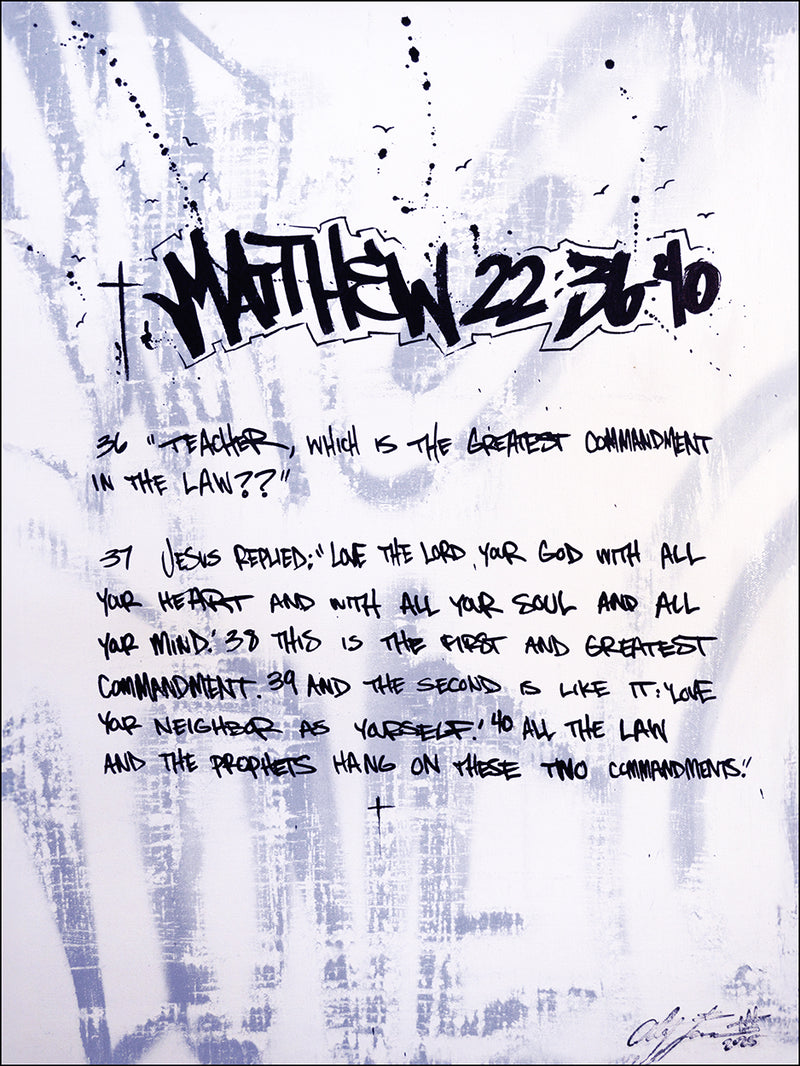 MATTHEW 22:36-40
36 "TEACHER, WHICH IS THE GREATEST COMMANDMENT
IN THE LAW??"
37 JESUS REPLIED: "LOVE THE LORD, YOUR GOD WITH ALL
YOUR HEART AND WITH ALL YOUR SOUL AND ALL
YOUR MIND.' 38 THIS IS THE FIRST AND GREATEST
COMMANDMENT. 39 AND THE SECOND IS LIKE IT: 'LOVE
YOUR NEIGHBOR AS YOURSELF.' 40 ALL THE LAW
AND THE PROPHETS HANG ON THESE TWO COMMANDMENTS."
2025